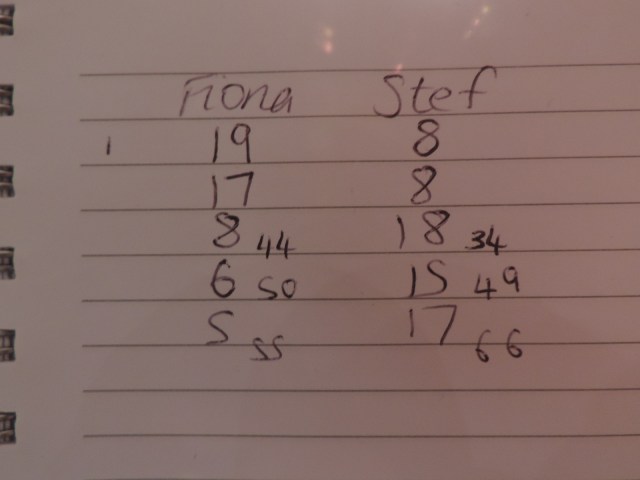 Fiona Stef
1 19 8
17 8
8 44 18 34
6 50 15 49
5 55 17 66